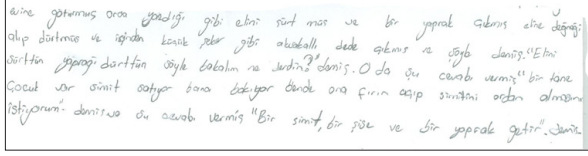 evine götürmüş orda yazdığı gibi elini sürt müş ve bir yaprak çıkmış eline değneği
alıp dürtmüş ve içinden küçük şeker gibi aksakallı dede çıkmış ve şöyle demiş. "Elini
sürttün yaprağı dürttün söyle bakalım ne derdin?" demiş. O da şu cevabı vermiş "bir tane
Çocuk var simit satıyor bana bakıyor bende ona fırın açıp simitini ordan almasını
istiyorum". demiş ve şu cevabı vermiş "Bir simit, bir şişe ve bir yaprak getir". demiş.